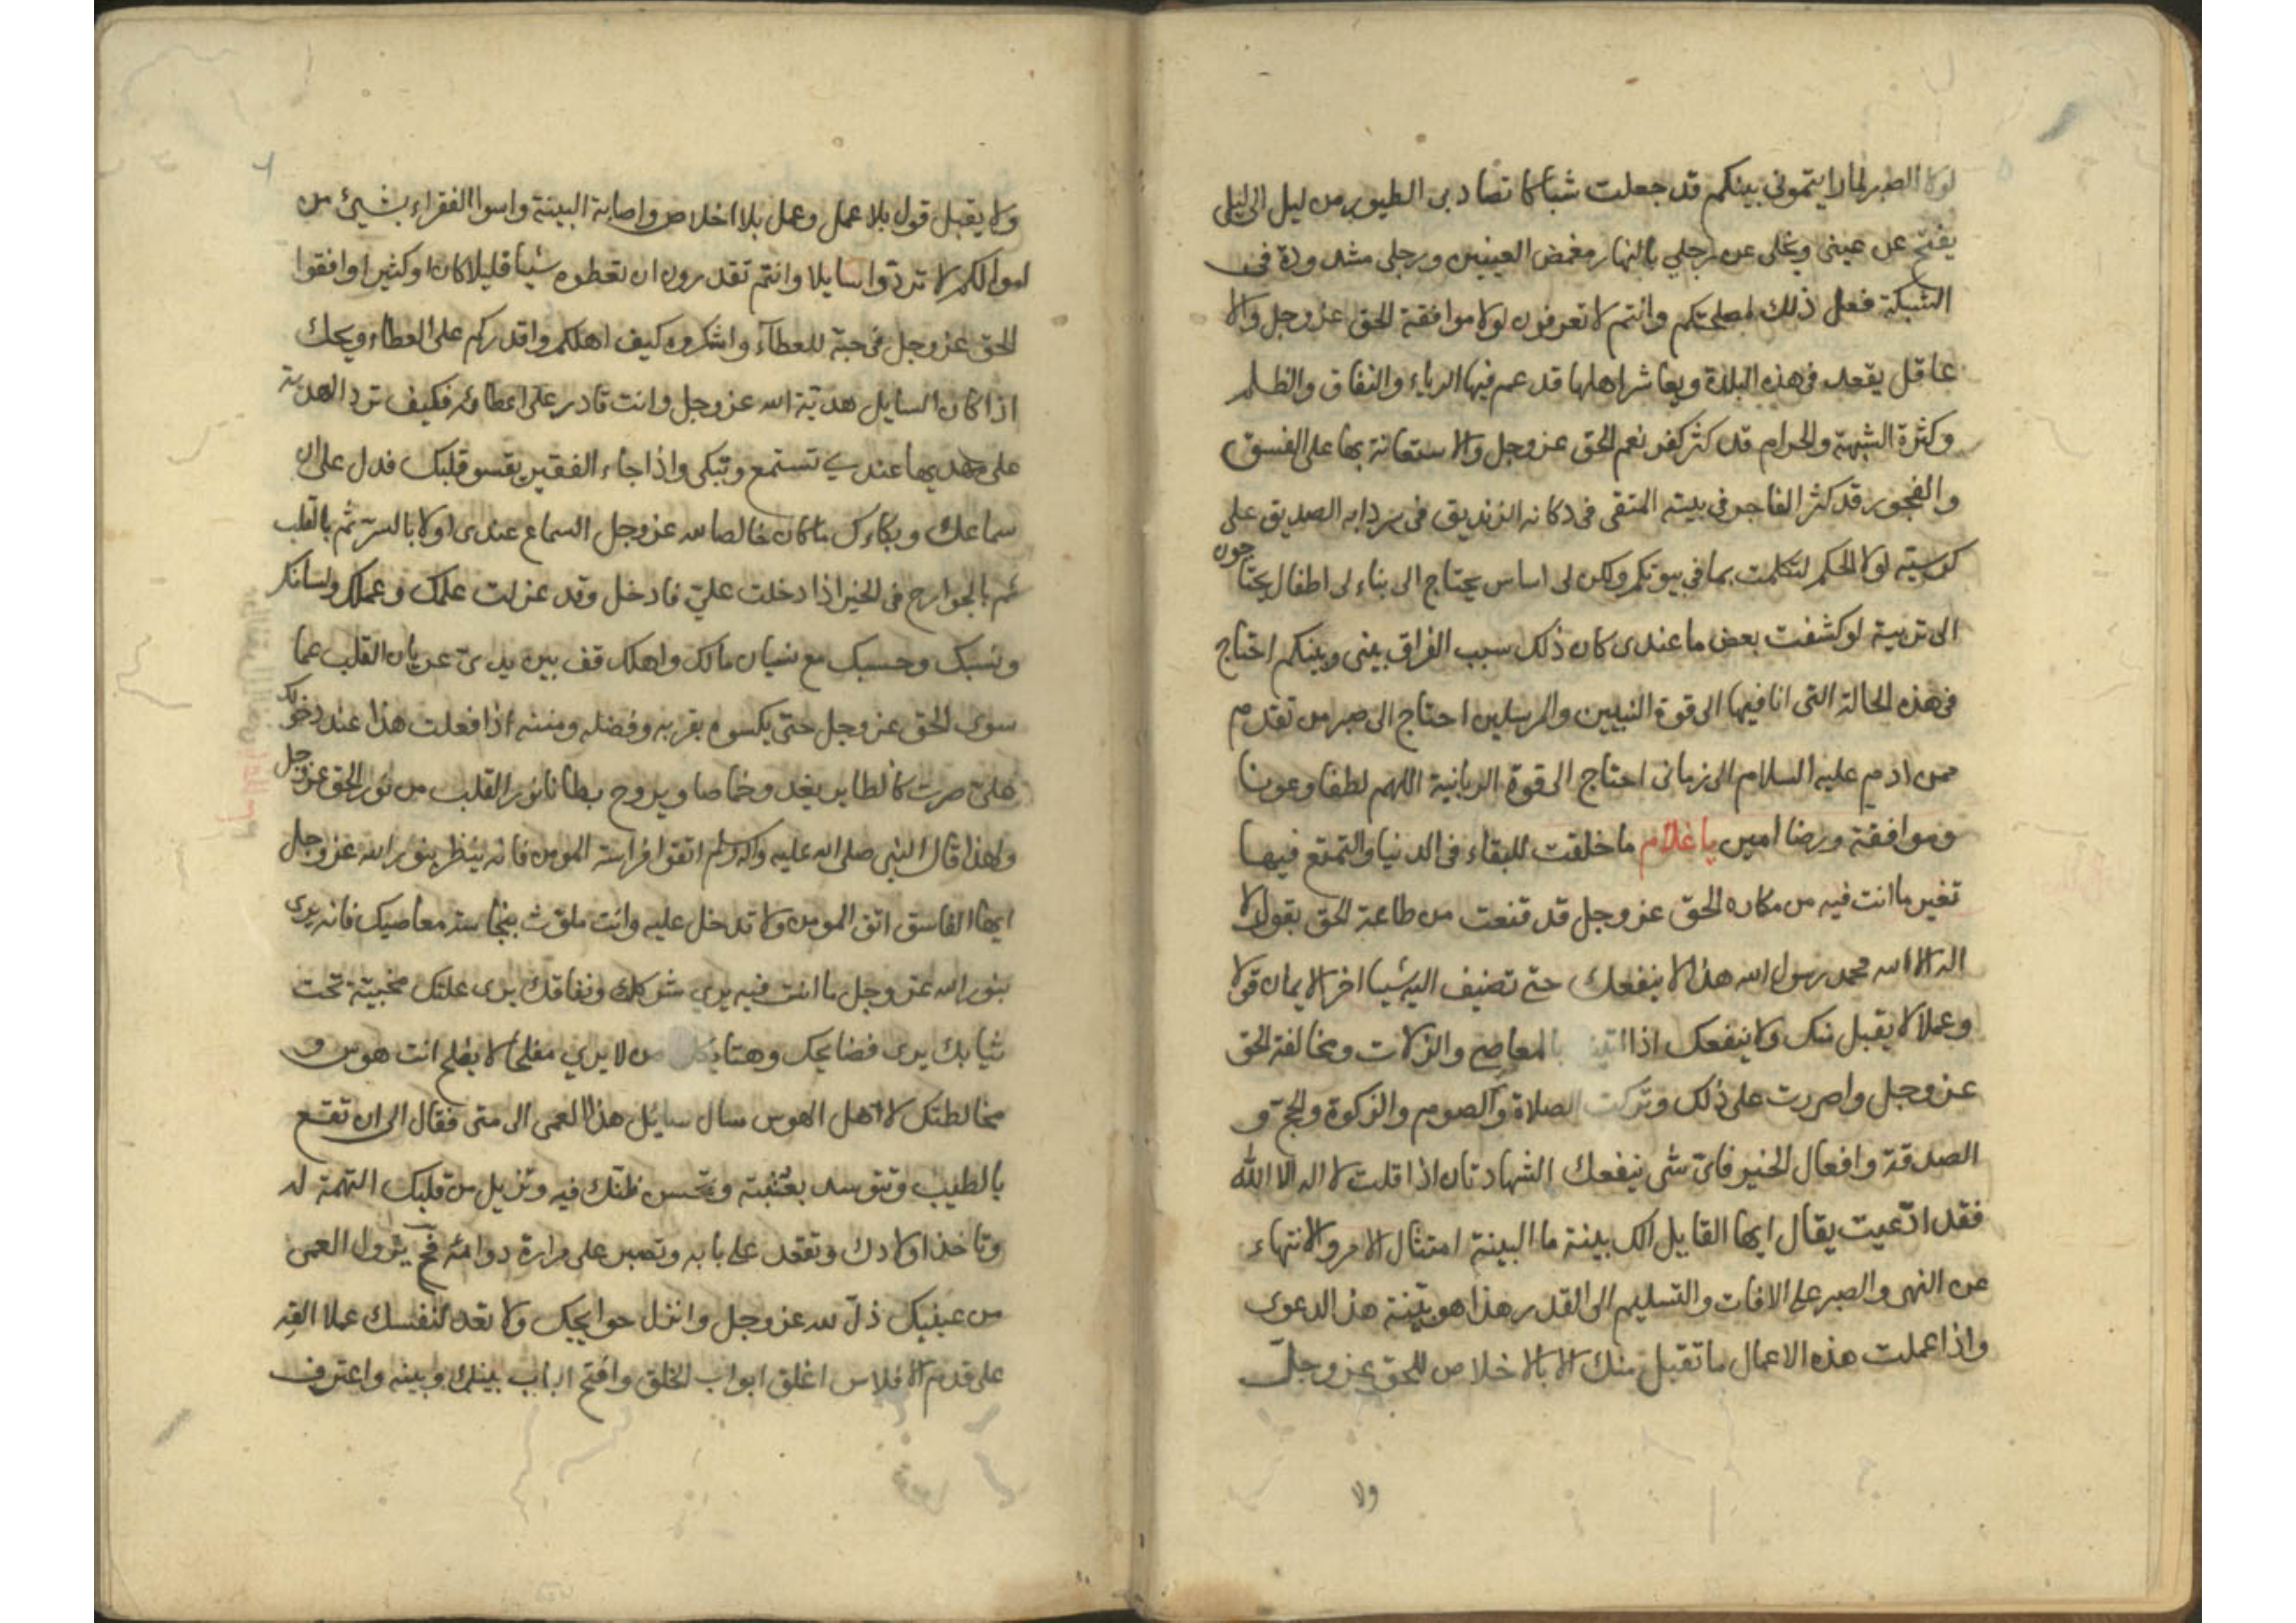 لولا الصبر لما رايتموني بينكم قد جعلت شباكا تصاد بي الطيور من ليل الى ليل
يفتح عن عيني ويخلى عن رجلي بالنهار مغمض العينين ورجلى مشدودة في
الشبكة فعل ذلك لمصلحتكم وانتم لا تعرفون لولا موافقة الحق عز وجل والا
عاقل يقعد فى هذه البلدة ويعاشر اهلها قد عم فيها الرياء والنفاق والظلم
وكثرة الشبهة والحرام قد كثر كفر نعم الحق عز وجل والاستعانة بها على الفسق
والفجور قد كثر الفاجر في بيته المتقى فى دكانه الزنديق فى سردابه الصديق على
كرسيته لولا الحكم لتكلمت بما في بيوتكم ولكن لى اساس يحتاج الى بناء لى اطفال يحتاجون
الى تربية لو كشفت بعض ما عندى كان ذلك سبب الفراق بينى وبينكم احتاج
فى هذه الحالة التى انا فيها الى قوة النبيين والمرسلين احتاج الى صبر من تقدم
ممن ادم عليه السلام الى زمانى احتاج الى قوة الربانية اللهم لطفا وعونا
وموافقة ورضا امين يا غلام ما خلقت للبقاء فى الدنيا والتمتع فيها
تغير ما انت فيه من مكاره الحق عز وجل قد قنعت من طاعة الحق بقول لا
اله الا الله محمد رسول الله هذا لا ينفعك حتى تضيف اليه شيا اخر الايمان قولا
وعملا لا يقبل منك ولا ينفعك اذا بالمعاصي والزلات ومخالفة الحق
عز وجل واصررت على ذلك وتركت الصلاة والصوم والزكوة والحج و
الصدقة وافعال الخير فاى شى ينفعك الشهادتان اذا قلت لا اله الا الله
فقد ادّعيت يقال ايها القايل الك بينة ما البينة امتثال الامر والانتهاء
عن النهى والصبر على الافات والتسليم الى القدر هذا هو بيّنة هذ الدعوى
واذا عملت هذه الاعمال ما تقبل منك الا بالاخلاص للحق عز وجل
ولا
ولا يقبل قول بلا عمل وعمل بلا اخلاص واصابة البينة واسوا الفقراء بشيئ من
اموالكم لا تردّوا سايلا وانتم تقدرون ان تعطوه شيا قليلا كان او كثيرا وافقوا
الحق عز وجل فى حبّه للعطآء واشكروه كيف اهلكم واقدركم على العطاء ويحك
اذا كان السايل هديّة الله عز وجل وانت قادر على اعطائه فكيف ترد الهدية
على مهديها عندي تستمع وتبكى واذا جاء الفقير يقسو قلبك فدل على ان
سماعك وبكاءك ما كان خالصا لله عز وجل السماع عندى اولا بالسرّ ثم بالقلب
ثم بالجوارح فى الخير اذا دخلت علىّ فادخل وقد عزلت علمك وعملك ولسانك
ونسبك وحسبك مع نسيان مالك واهلك قف بين يدىّ عريان القلب عما
سوى الحق عز وجل حتى يكسوه بقربه وفضله ومننه اذا فعلت هذا عند دخولك
علىّ صرت كالطاير يغدو خماصا ويروح بطانا نور القلب من نور الحق عز وجل
ولهذا قال النبى صلى الله عليه واله وسلم اتقوا فراسة المومن فانه ينظر بنور الله عز وجل
ايها الفاسق اتق المومن ولا تدخل عليه وانت ملوّث بنجاسة معاصيك فانه يرى
بنور الله عز وجل ما انت فيه يرى شركك ونفاقك يرى علتك مخبية تحت
ثيابك يرى فضايحك وهتايكك من لا يري مفلحا لا يفلح انت هوس و
مخالطتك لاهل الهوس سال سايل هذا العمى الى متى فقال الى ان تقع
بالطبيب وتتوسد بعتبته وتحسن ظنك فيه وتزيل من قلبك التهمة له
وتاخذ اولادك وتقعد على بابه وتصبر على مرارة دوائه فح يزول العمى
من عينيك ذلّ لله عز وجل وانزل حوايجك ولا تعد لنفسك عملا القه
على قدم الافلاس اغلق ابواب الخلق وافتح الباب بينك وبينه واعترف